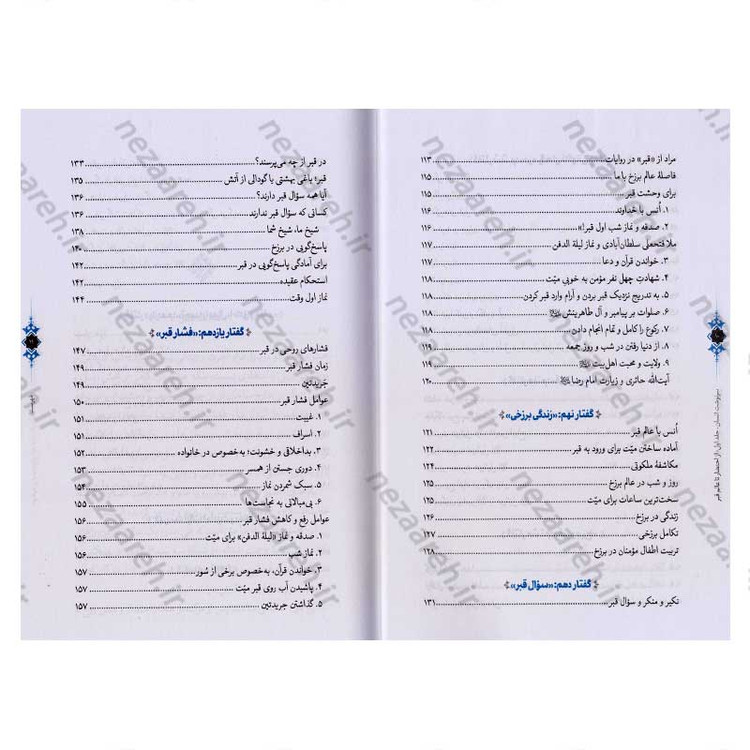 مراد از «قبر» در روایات ۱۱۳
فاصلهٔ عالم برزخ با ما ۱۱۵
برای وحشت قبر ۱۱۵
۱. اُنس با خداوند ۱۱۶
۲. صدقه و نماز شب اول قبر!» ۱۱۶
ملا فتحعلی سلطان‌آبادی و نماز لیلة الدفن ۱۱۷
۳. خواندن قرآن و دعا ۱۱۷
۴. شهادتِ چهل نفر مؤمن به خوبیِ میّت ۱۱۸
۵. به تدریج نزدیک قبر بردن و آرام وارد قبر کردن ۱۱۸
۶. صلوات بر پیامبر و آل طاهرینش ۱۱۸
۷. رکوع را کامل و تمام انجام دادن ۱۱۸
۸. از دنیا رفتن در شب و روز جمعه ۱۱۹
۹. ولایت و محبت اهل‌بیت ۱۱۹
آیت‌الله حائری و زیارت امام رضا ۱۲۰
گفتار نهم: «زندگی برزخی»
اُنس با عالم قبر ۱۲۱
آماده ساختن میّت برای ورود به قبر ۱۲۲
مکاشفهٔ ملکوتی ۱۲۴
روز و شب در عالم برزخ ۱۲۴
سخت‌ترین ساعات برای میّت ۱۲۵
زندگی در برزخ ۱۲۶
تکامل برزخی ۱۲۷
تربیت اطفال مؤمنان در برزخ ۱۲۸
گفتار دهم: «سؤال قبر»
نکیر و منکر و سؤال قبر ۱۳۱
سرنوشت انسان، جلد اول: از احتضار تا عالم قبر
در قبر از چه می‌پرسند؟ ۱۳۳
قبر؛ باغی بهشتی یا گودالی از آتش ۱۳۵
آیا همه سؤال قبر دارند؟ ۱۳۶
کسانی که سؤال قبر ندارند ۱۳۶
شیخ ما، شیخ شما ۱۳۸
پاسخ‌گویی در برزخ ۱۴۰
برای آمادگی پاسخ‌گویی در قبر ۱۴۲
استحکام عقیده ۱۴۲
نماز اول وقت ۱۴۴
گفتار یازدهم: «فشار قبر»
فشارهای روحی در قبر ۱۴۷
زمان فشار قبر ۱۴۹
جَریدتَین ۱۴۹
عوامل فشار قبر ۱۵۰
۱. غیبت ۱۵۱
۲. اسراف ۱۵۱
۳. بداخلاقی و خشونت؛ به‌خصوص در خانواده ۱۵۲
۴. دوری جستن از همسر ۱۵۳
۵. سبک شمردن نماز ۱۵۴
۶. بی‌مبالاتی به نجاست‌ها ۱۵۵
عوامل رفع و کاهش فشار قبر ۱۵۶
۱. صدقه و نماز «لیلة الدفن» برای میّت ۱۵۶
۲. نماز شب ۱۵۶
۳. خواندن قرآن، به‌خصوص برخی از سُور ۱۵۷
۴. پاشیدن آب روی قبر میّت ۱۵۷
۵. گذاشتن جریدتین ۱۵۷
nezaareh.ir